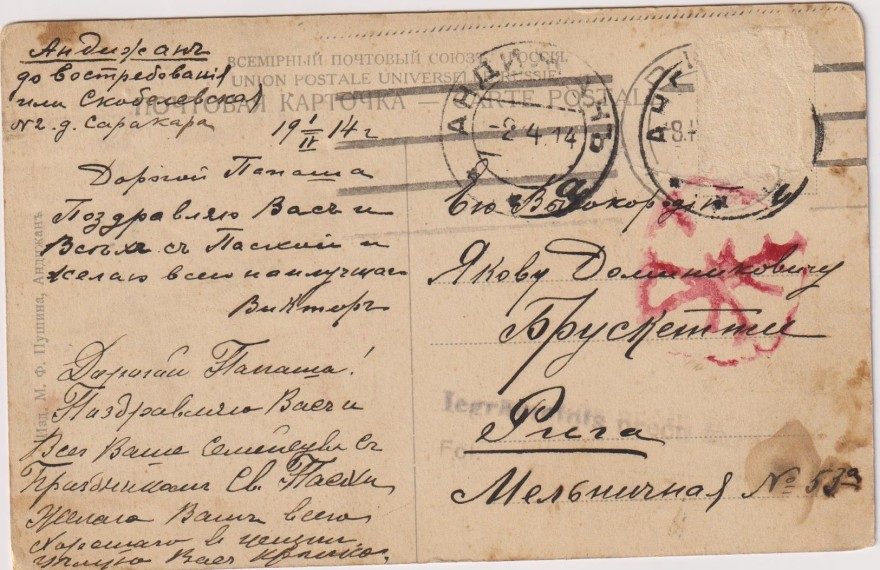 Андижанъ
до востребованія
или Скобелевская
№ 2. д. Саркара
19 1/IV 14 г.
ВСЕМІРНЫЙ ПОЧТОВЫЙ СОЮЗЪ. РОССІЯ.
UNION POSTALE UNIVERSELLE. RUSSIE.
ПОЧТОВАЯ КАРТОЧКА — CARTE POSTALE
АНДИЖАНЪ
-2 4.14
Дорогой Папаша
Поздравляю Васъ и
Всѣхъ съ Пасхой и
желаю всего наилучшаго
Викторъ
Дорогой Папаша!
Поздравляю Васъ и
Все Ваше Семейство съ
Праздникомъ Св. Пасхи,
Желаю Вамъ всего
Хорошаго в жизни
цѣлую Васъ крѣпко.
Его Высокородію
Якову Доминиковичу
Брускетти
Рига
Мельничная № 53а
Изд. М. Ф. Пушина, Андижанъ